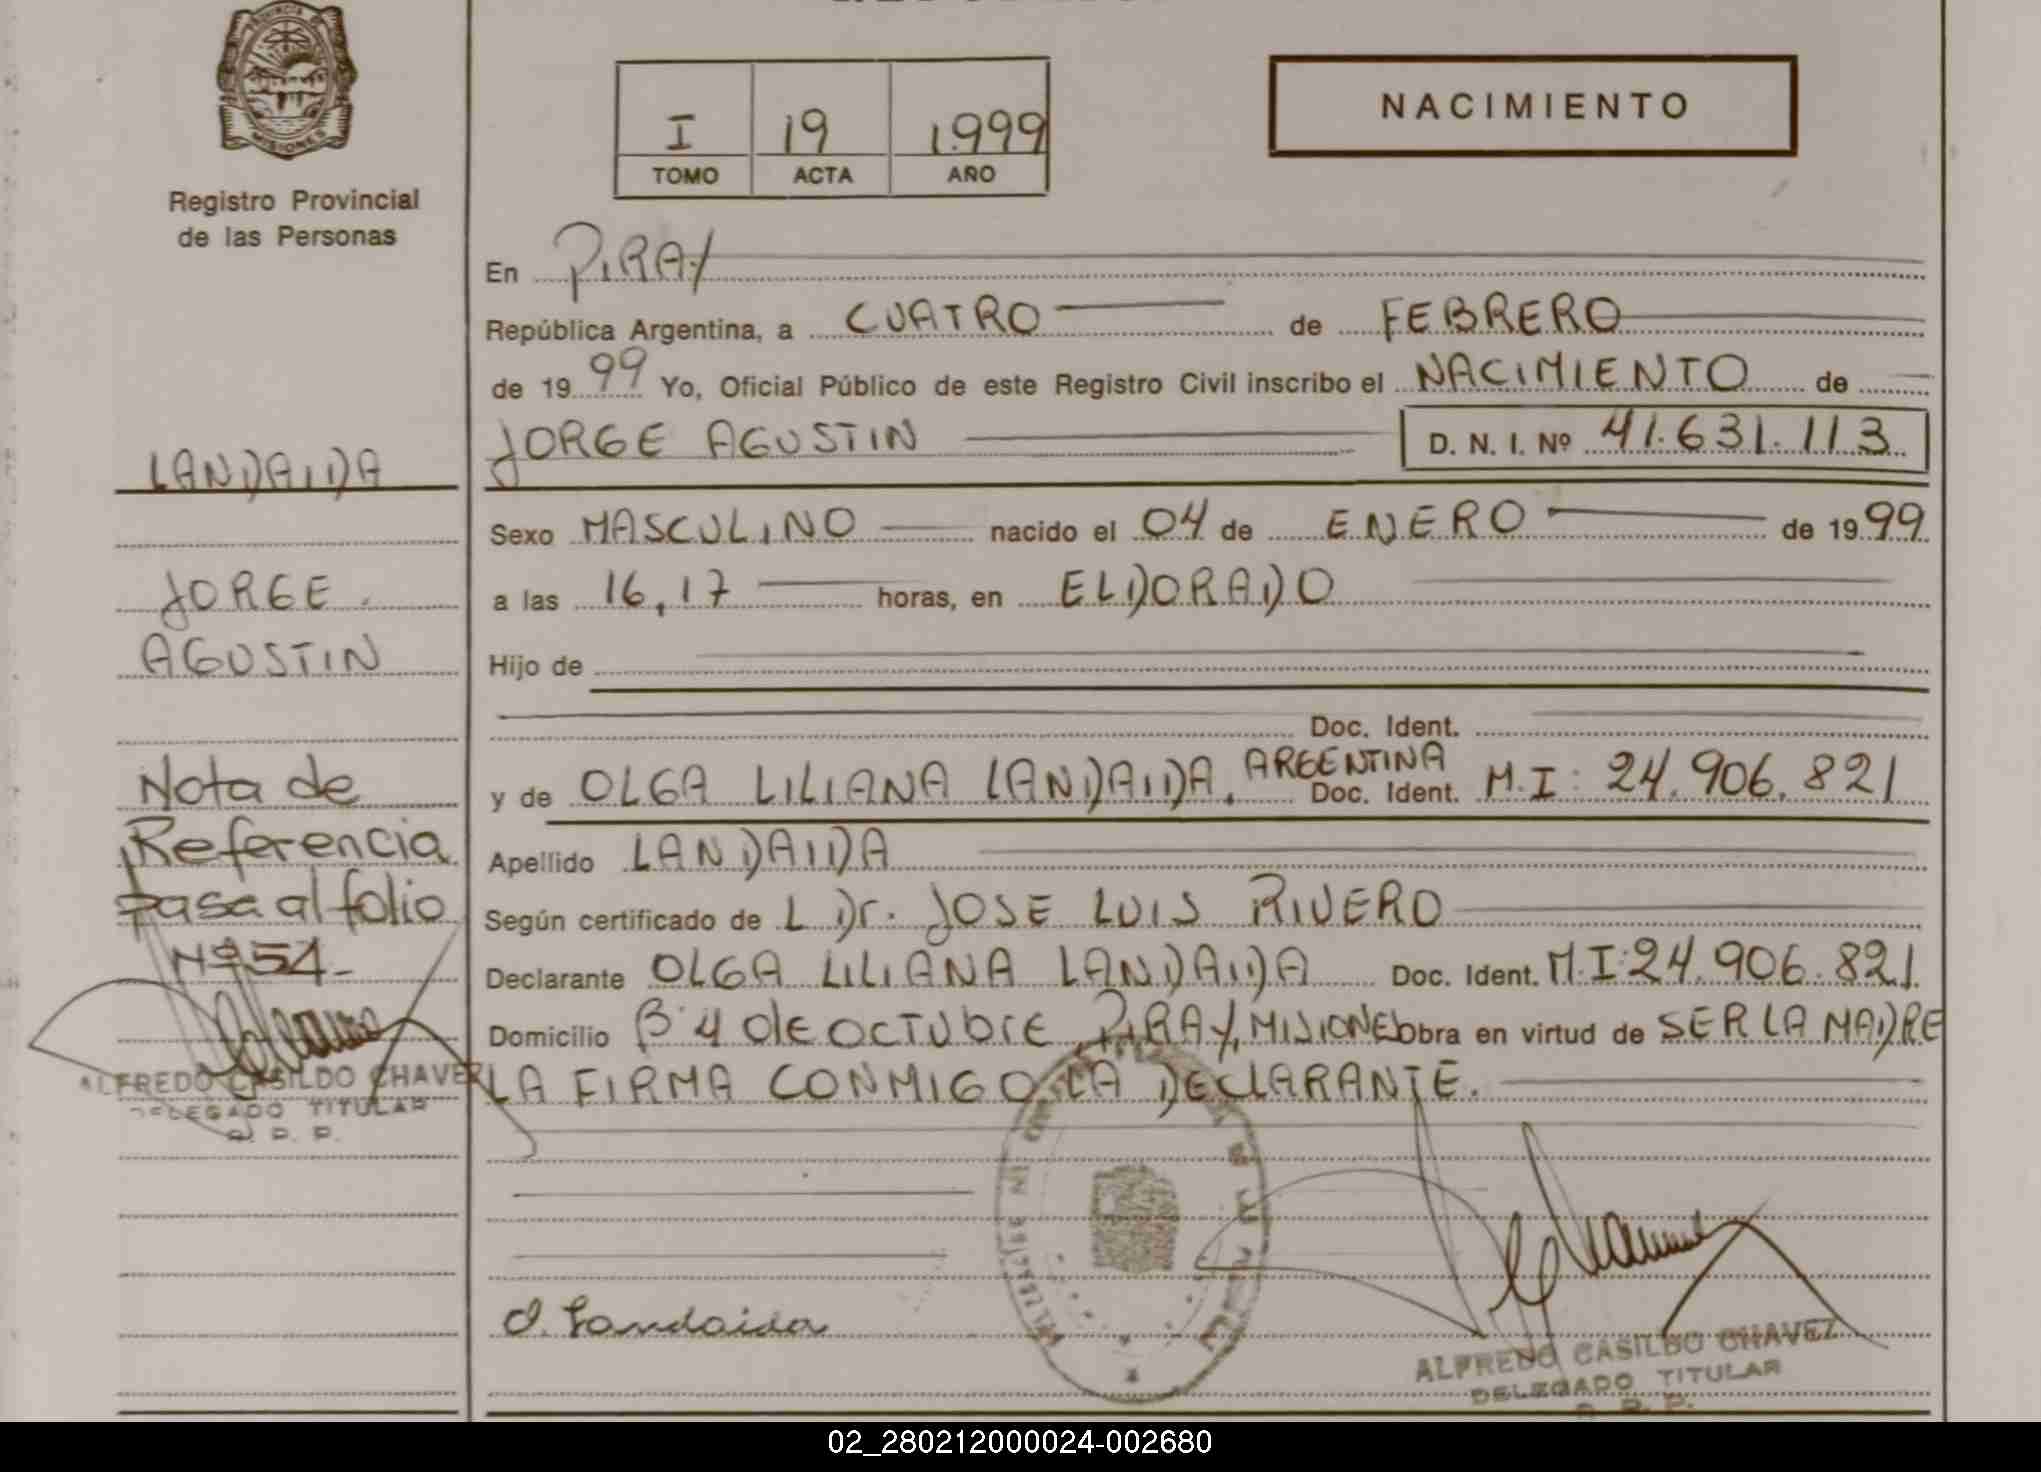 PROVINCIA DE
MISIONES
Registro Provincial
de las Personas
I 19 1.999
TOMO ACTA AÑO
NACIMIENTO
En PIRAY
República Argentina, a CUATRO de FEBRERO
de 1999 Yo, Oficial Público de este Registro Civil inscribo el NACIMIENTO de
JORGE AGUSTIN D. N. I. Nº 41.631.113
LANDAIDA
Sexo MASCULINO nacido el 04 de ENERO de 1999
JORGE
a las 16,17 horas, en ELDORADO
AGUSTIN
Hijo de
Doc. Ident.
Nota de
y de OLGA LILIANA LANDAIDA, ARGENTINA Doc. Ident. M.I: 24.906.821
Referencia
Apellido LANDAIDA
pasa al folio
Según certificado de L Dr. JOSE LUIS RIVERO
Nº 54-
Declarante OLGA LILIANA LANDAIDA Doc. Ident. M.I:24.906.821
Domicilio Bº 4 de OCTUbre, PIRAY, MISIONES obra en virtud de SER LA MADRE
LA FIRMA CONMIGO LA DECLARANTE.
ALFREDO CASILDO CHAVEZ
DELEGADO TITULAR
R. P. P.
O. Landaida
ALFREDO CASILDO CHAVEZ
DELEGADO TITULAR
R. P. P.
02_280212000024-002680